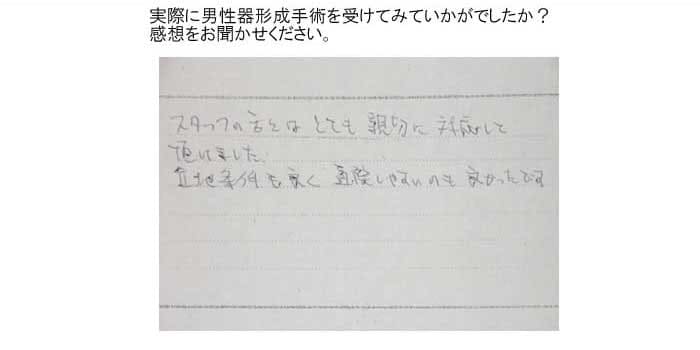 実際に男性器形成手術を受けてみていかがでしたか？
感想をお聞かせください。
スタッフの方とは とても 親切に 対応して
頂けました。
立地条件も良く 直接しやすいのも 良かったです